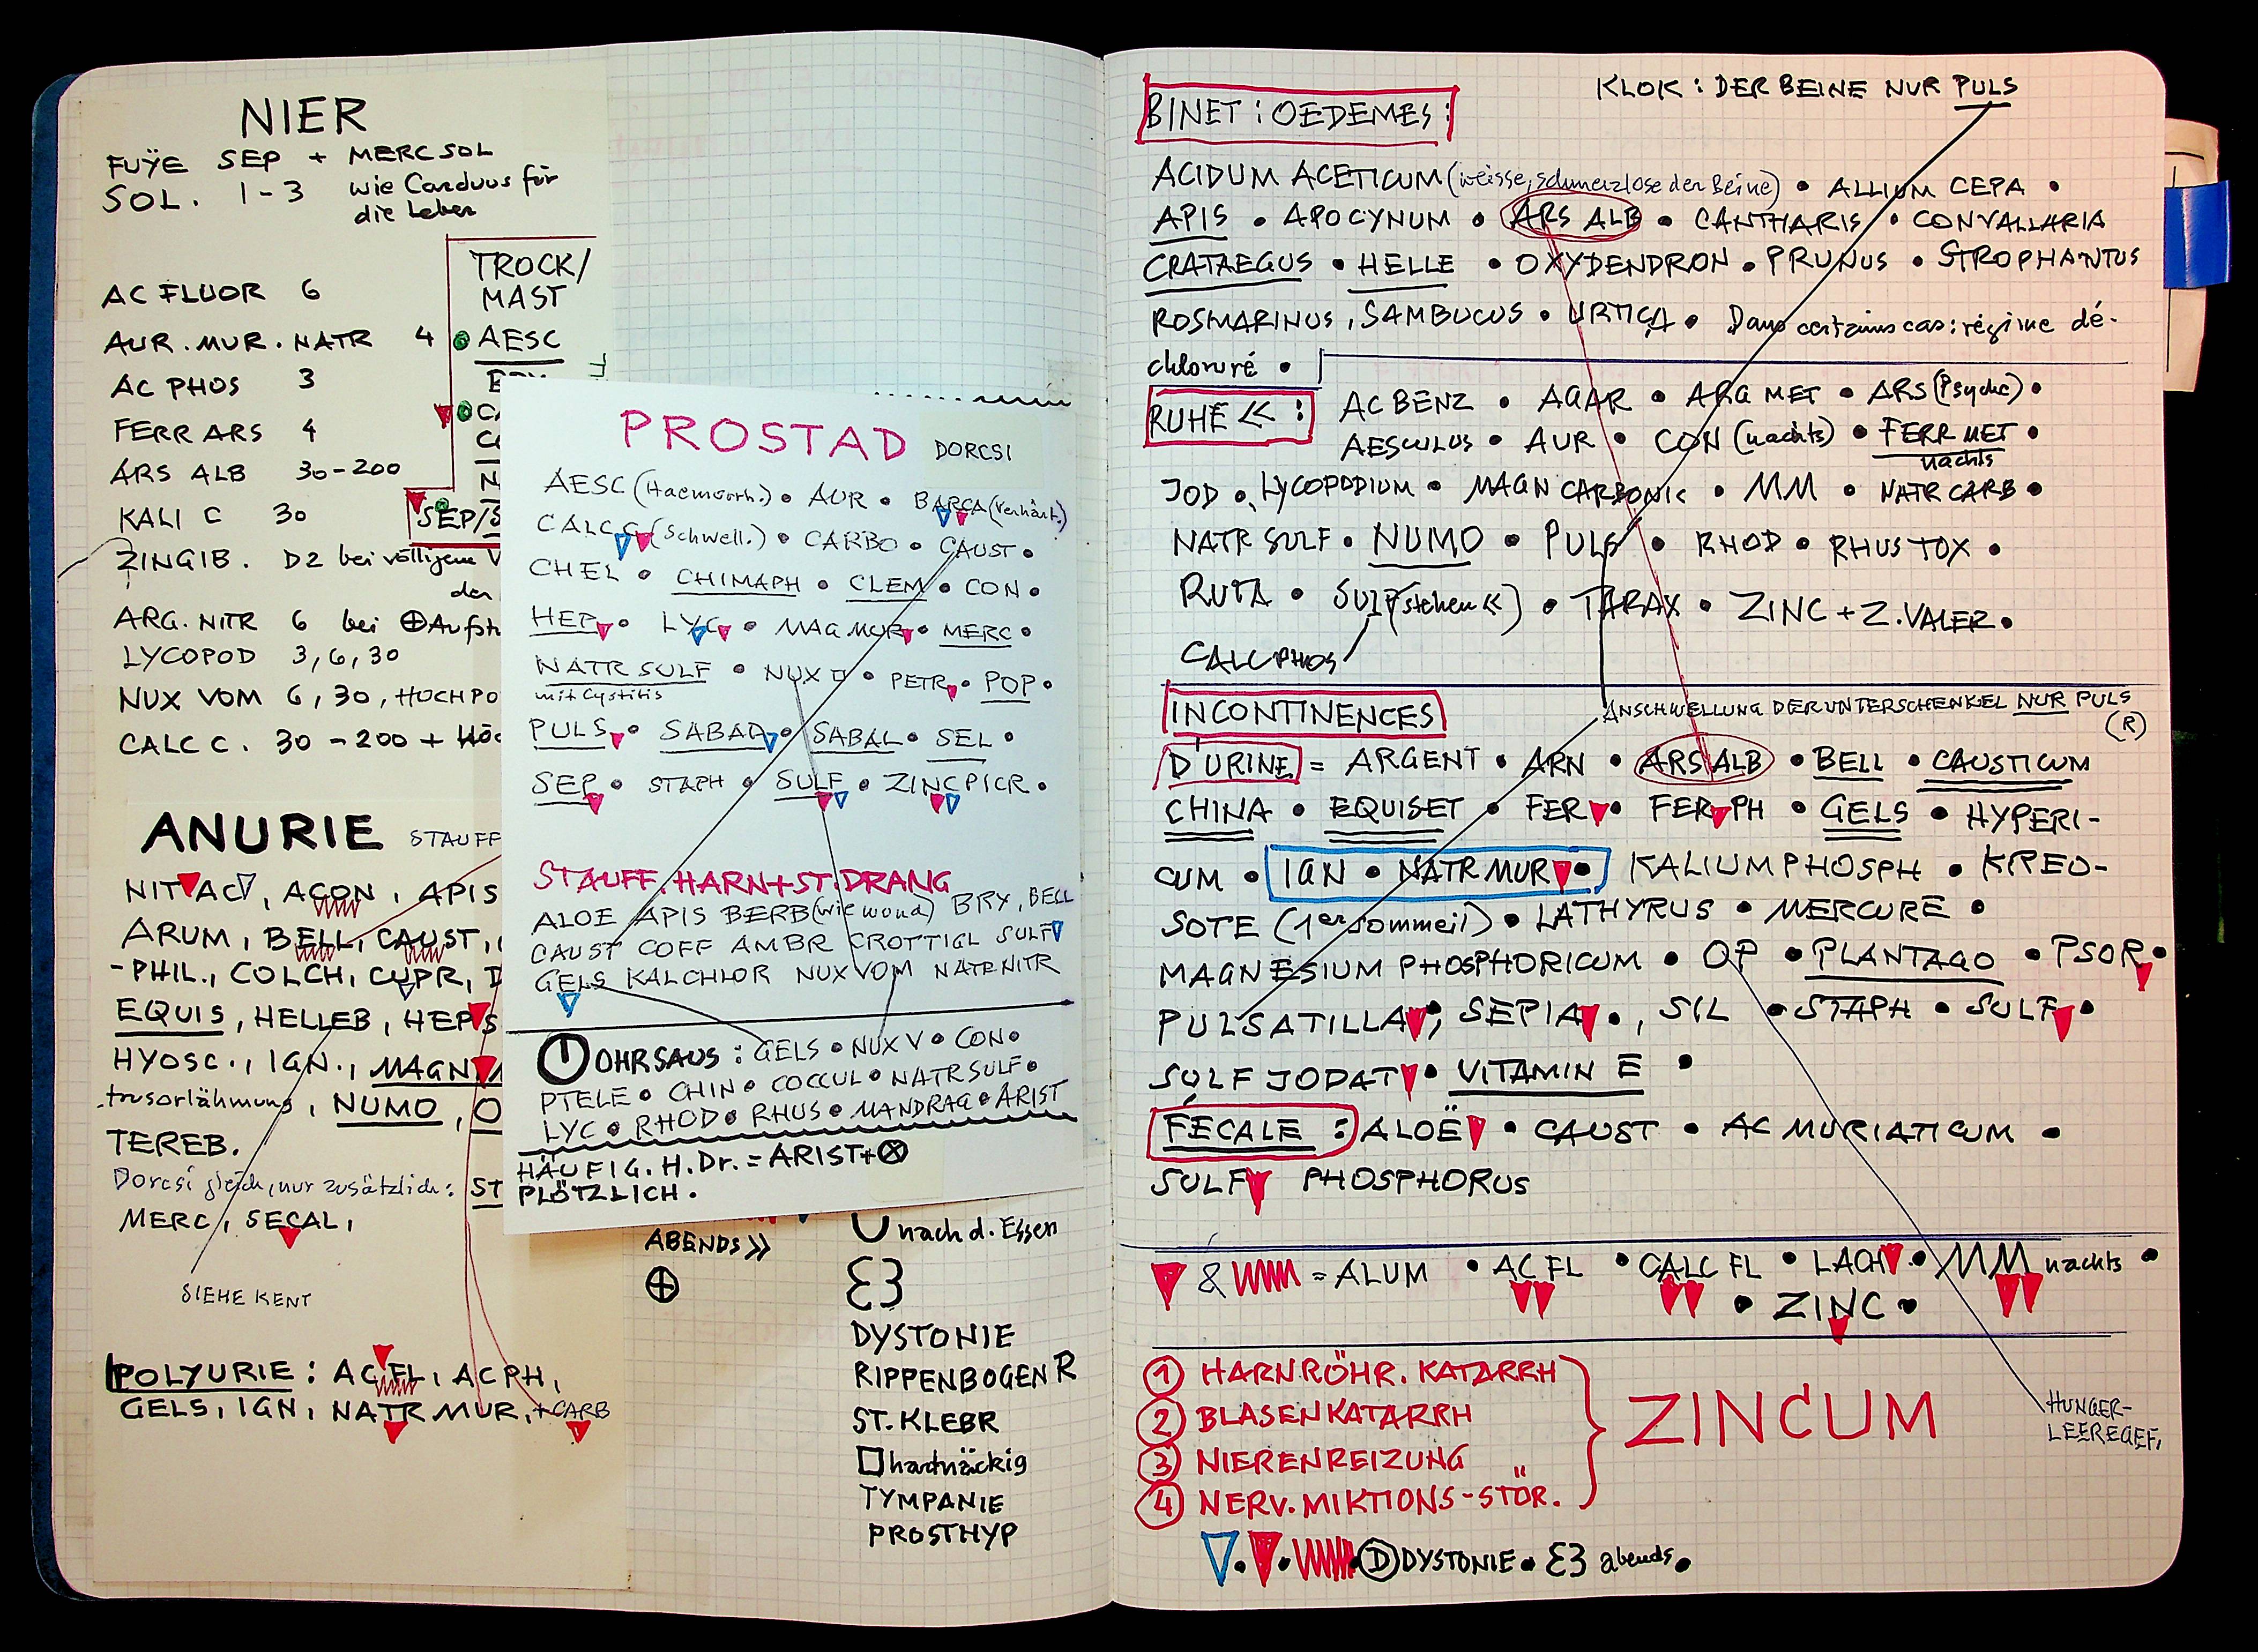 NIER
FUŸE SEP + MERC SOL
SOL. 1-3 wie Carduus für
die Leber
AC FLUOR 6
AUR. MUR. NATR 4
AC PHOS 3
FERR ARS 4
ARS ALB 30-200
KALI C 30
ZINGIB. D2 bei völligem V
der
ARG. NITR 6 bei ⊕Aufst
LYCOPOD 3, 6, 30
NUX VOM 6, 30, HOCHPO
CALC C. 30-200 + HÖC
TROCK/
MAST
AESC
SEP/S
ANURIE STAUFF
NIT AC, ACON, APIS
ARUM, BELL, CAUST,
-PHIL., COLCH, CUPR, D
EQUIS, HELLEB, HEP S
HYOSC., IGN., MAGN M
, NUMO, O
TEREB.
Dorcsi gleich, nur zusätzlich: ST
MERC, SECAL,
SIEHE KENT
POLYURIE: AC FL, AC PH,
GELS, IGN, NATR MUR, +CARB
PROSTAD DORCSI
AESC (Haemorrh.) • AUR • BARCA (Verhärt.)
CALC C (Schwell.) • CARBO • CAUST •
CHEL • CHIMAPH • CLEM • CON •
HEP • LYC • MAG MUR • MERC •
NATR SULF • NUX • PETR • POP •
mit Cystitis
PULS • SABAD • SABAL • SEL •
SEP • STAPH • SULF • ZINC PICR •
STAUFF. HARN+ST.DRANG
ALOE APIS BERB (wie wund) BRY, BELL
CAUST COFF AMBR CROTTIGL SULF
GELS KALCHLOR NUX VOM NATR NITR
OHRSAUS: GELS • NUX V • CON •
PTELE • CHIN • COCCUL • NATR SULF •
LYC • RHOD • RHUS • MANDRAG • ARIST
HÄUFIG. H. Dr. = ARIST+⊗
PLÖTZLICH.
ABENDS >>
⊕
nach d. Essen
DYSTONIE
RIPPENBOGEN R
ST. KLEBR
hartnäckig
TYMPANIE
PROSTHYP
KLOK: DER BEINE NUR PULS
BINET: OEDEMES:
ACIDUM ACETICUM (weisse, schmerzlose der Beine) • ALLIUM CEPA •
APIS • APOCYNUM • ARS ALB • CANTHARIS • CONVALLARIA
CRATAEGUS • HELLE • OXYDENDRON • PRUNUS • STROPHANTUS
ROSMARINUS, SAMBUCUS • URTICA • Dans certains cas: régime dé-
chloruré •
RUHE <<: AC BENZ • AGAR • ARG MET • ARS (Psyche) •
AESCULUS • AUR • CON (nachts) • FERR MET •
nachts
JOD • LYCOPODIUM • MAGN CARBONIC • MM • NATR CARB •
NATR SULF • NUMO • PULS • RHOD • RHUS TOX •
RUTA • SULF (stehen <<) • TARAX • ZINC + Z. VALER •
CALC PHOS
INCONTINENCES
ANSCHWELLUNG DER UNTERSCHENKEL NUR PULS
(R)
D'URINE = ARGENT • ARN • ARS ALB • BELL • CAUSTICUM
CHINA • EQUISET • FER • FER PH • GELS • HYPERI-
CUM • IGN • NATR MUR • KALIUM PHOSPH • KREO-
SOTE (1er sommeil) • LATHYRUS • MERCURE •
MAGNESIUM PHOSPHORICUM • OP • PLANTAGO • PSOR •
PULSATILLA, SEPIA •, SIL • STAPH • SULF •
SULF JODAT • VITAMIN E •
FÉCALE: ALOË • CAUST • AC MURIATICUM •
SULF PHOSPHORUS
& = ALUM • AC FL • CALC FL • LACH • MM nachts •
• ZINC •
① HARNRÖHR. KATARRH
② BLASENKATARRH
③ NIERENREIZUNG
④ NERV. MIKTIONS-STÖR.
ZINCUM
HUNGER-
LEEREGEF,
Ⓓ DYSTONIE • abends •